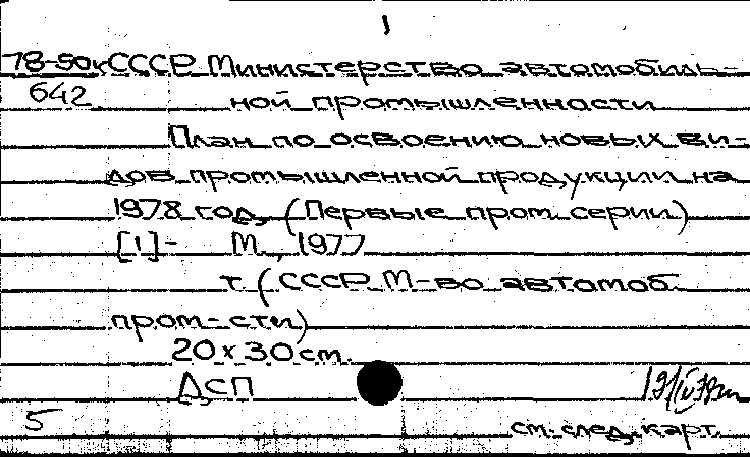 1
78-50к СССР. Министерство автомобиль-
642 ной промышленности
План по освоению новых ви-
дов промышленной продукции на
1978 год, (Первые пром. серии)
[1]- М., 1977
т. (СССР. М-во автомоб.
пром-сти)
20 х 30 см.
ДСП
5
см. след. карт.